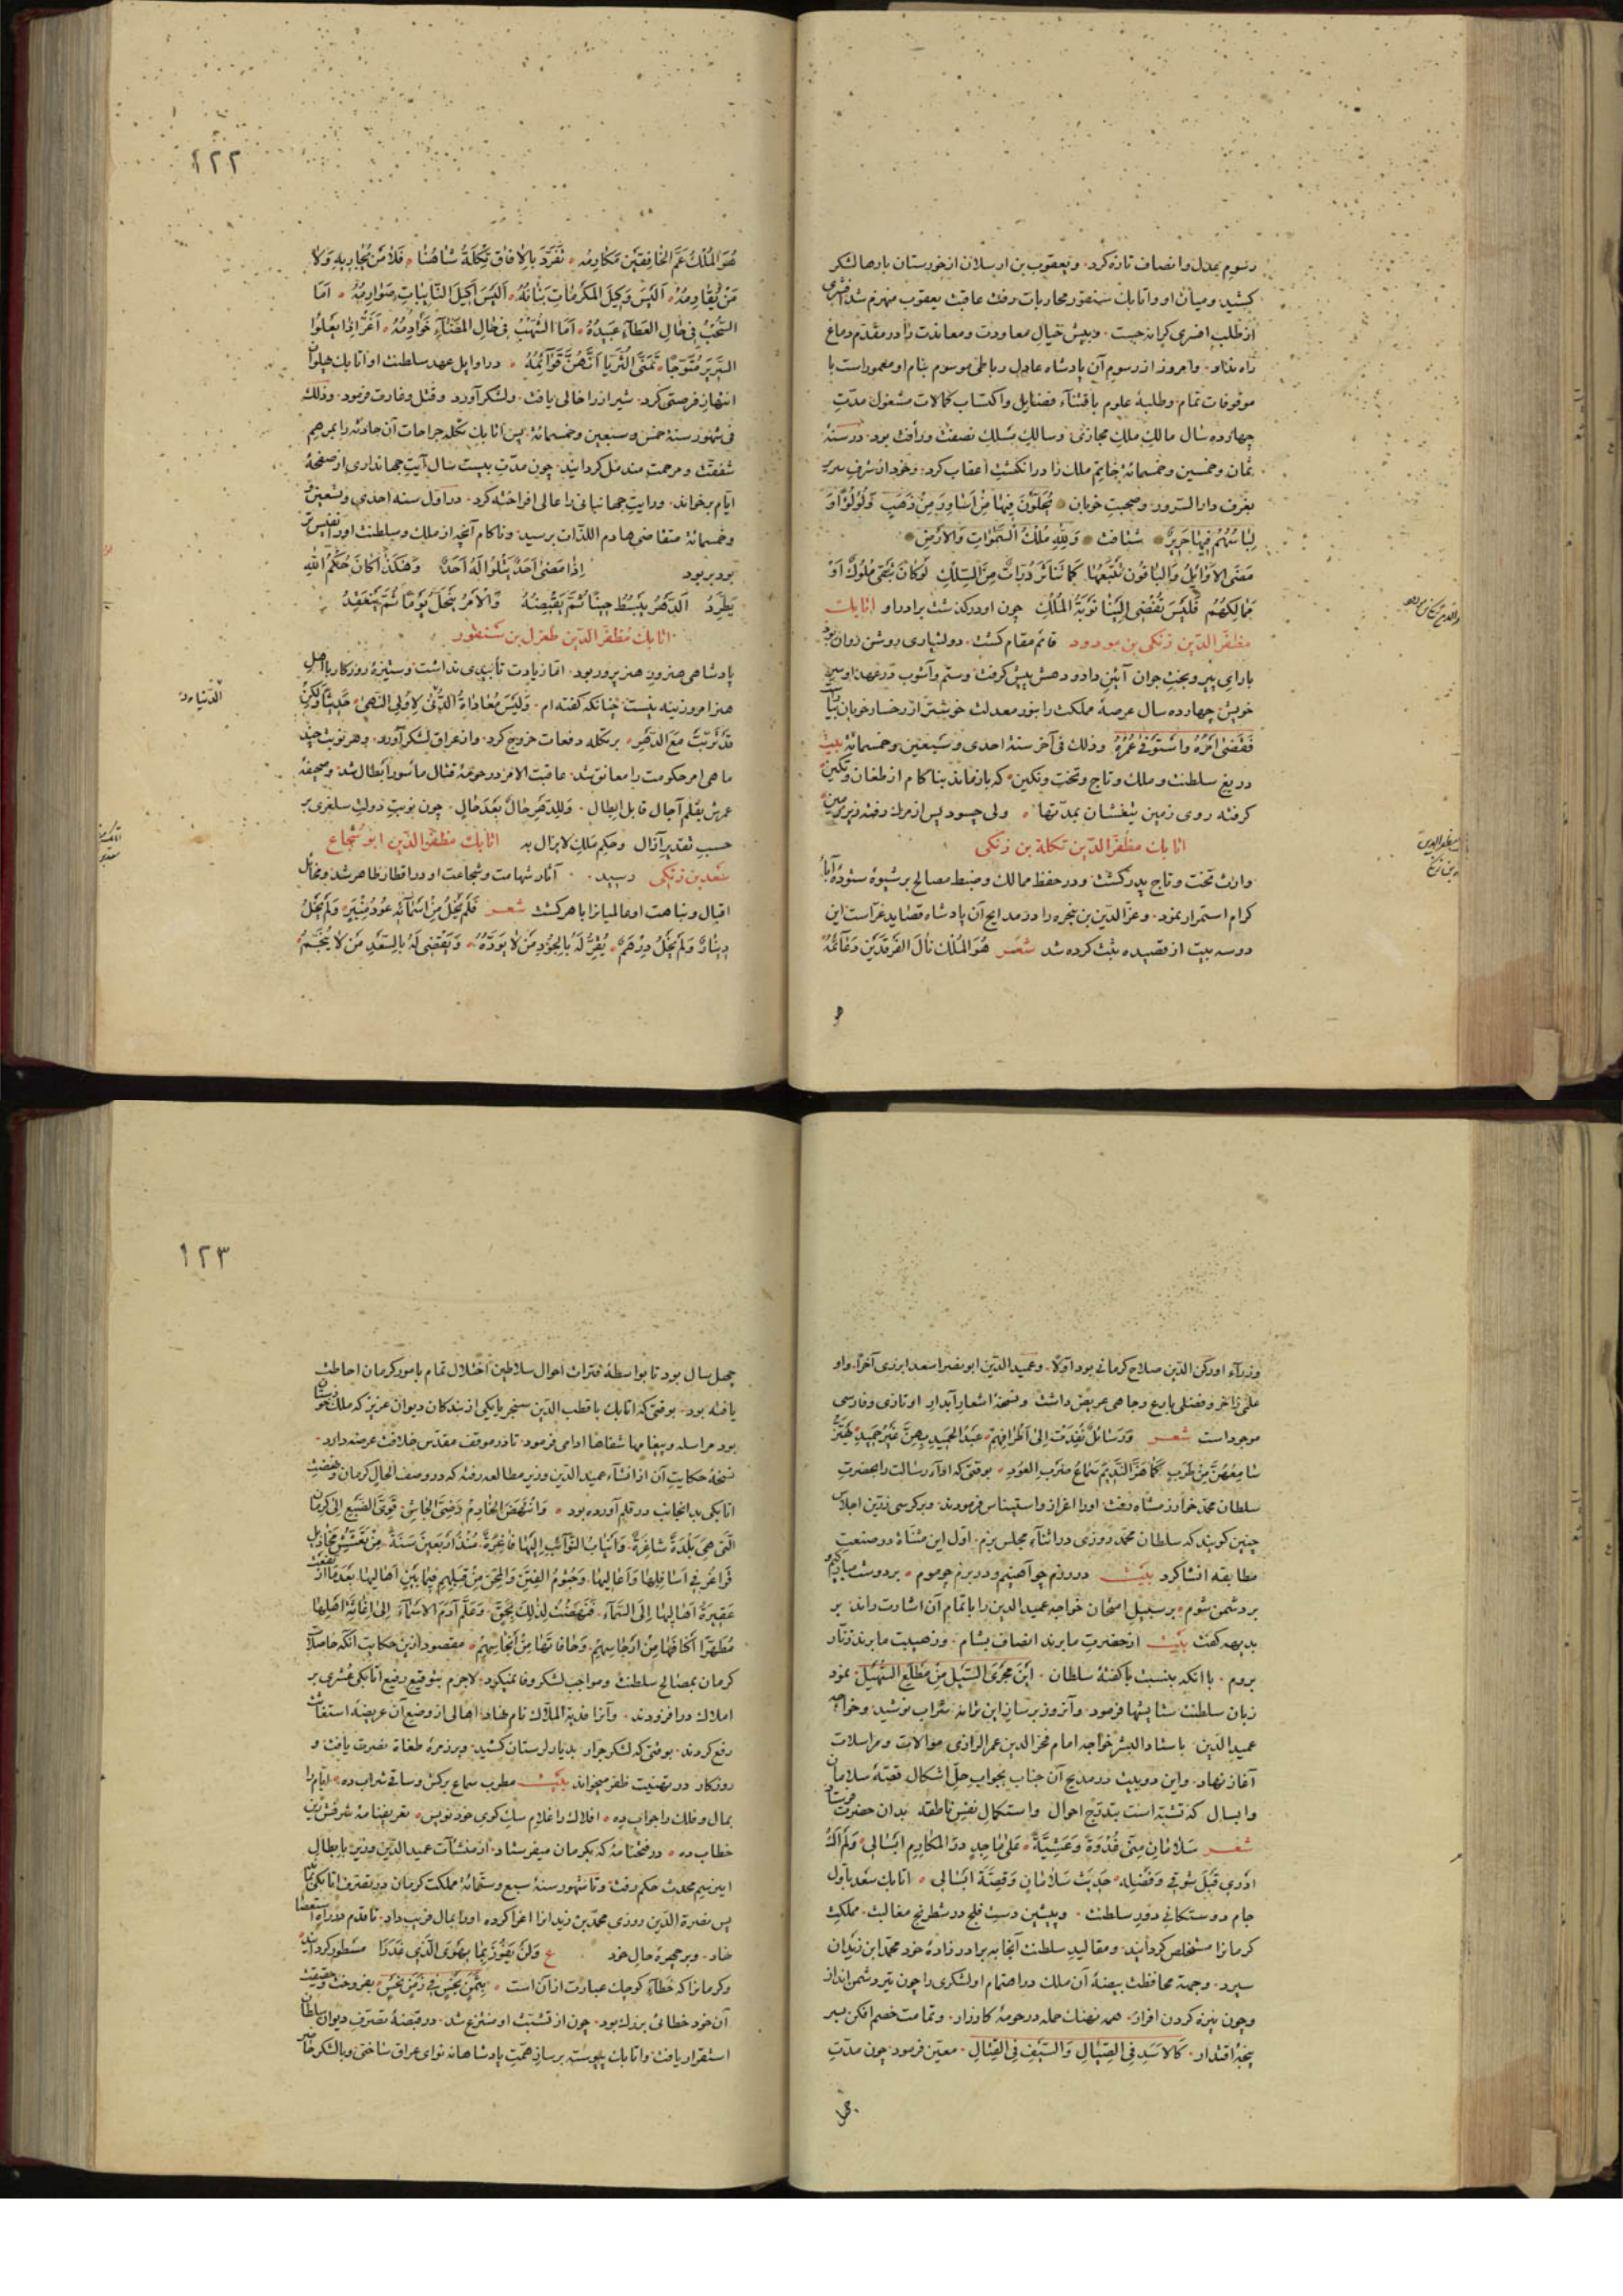 رسوم بعدل وانصاف تازه کرد. و یعقوب بن ارسلان از خوزستان بارها لشکر
کشید و میان او و اتابک سنقور محاربات رفت عاقبت یعقوب منهزم شد
از طلب کرانه جست. و بیش خیال معاودت و معاندت را در مقدم دماغ
راه نداد. و امروز از رسوم آن پادشاه عادل رباطی موسوم بنام او معمور است با
موقوفات تمام. وطلبهٔ علوم باقتناء فضایل واکتساب کمالات مشغول مدّتِ
چهارده سال مالک ملک مجازی وسالک مسلک نصفت ورأفت بود. در سنهٔ
ثمان وخمسین وخمسمائه خاتم ملک را در انکشت اعقاب کرد. وخود از شرف سریر
بغرف دار السرور. وصحبت خوبان يُحَلَّوْنَ فِيهَا مِنْ أَسَاوِرَ مِنْ ذَهَبٍ وَلُؤْلُؤًا وَ
لِبَاسُهُمْ فِيهَا حَرِيرٌ شتافت وَلِلّهِ مُلْكُ السَّمٰوَاتِ وَالأَرْضِ
مَضَى الأَوَائِلُ وَالبَاقُونَ تَتْبَعُهَا كَمَا تَنَاثَرَ دُرَّاتٌ مِنَ السِّلْكِ لَوْكَانَ يَبْقَى مُلُوكٌ أَوْ
مَمَالِكُهُمْ فَلَيْسَ يُفْضِي إِلَيْنَا نَوْبَةُ المُلْكِ چون او درکذشت برادر او اتابک
مظفر الدین زنکی بن مودود قائم مقام کشت. دولتیاری روشن روان بود
با رای پیر و بخت جوان آیین داد و دهش پیش کرفت. وستم وآشوب در عهد او سپر
خویش چهارده سال عرصهٔ مملکت را بنور معدلت خوشتر از رخسار خوبان
فَقَضَى أَمْرَهُ وَاسْتَوْفَى عُمْرَهُ وذلك فی آخر سنهٔ احدی وسبعین وخمسمائه بیت
دریغ سلطنت وملک وتاج وتخت ونکین که بازماند بناکام از طغان وتکین
کرفته روی زمین تیغشان بمدّتها ولی چسود پس از مرک رفته زیر زمین
اتابک مظفر الدین تکله بن زنکی
وارث تخت وتاج پدر کشت. ودر حفظ ممالک وضبط مصالح بر شیوهٔ ستودهٔ آباء
کرام استمرار نمود. وعزّ الدین بن پنجره را در مدایح آن پادشاه قصاید غرّاست این
دو سه بیت از قصیده ثبت کرده شد شعر هُوَ المُلْكُ نَالَ الفَرْقَدَيْنِ دَعَائِمُهُ
١٢٢
هُوَ المُلْكُ عَمَّ الخَافِقَيْنِ مَكَارِمُه تَفَرَّدَ بِالآفَاقِ تِكْلَةُ شَاهُنَا فَلَا مَنْ يُجَارِيهِ وَلَا
مَنْ يُقَاوِمُهُ أَلَيْسَ وَكِيلَ المَكْرُمَاتِ بَنَانُهُ أَلَيْسَ أَكِيلَ النَّائِبَاتِ صَوَارِمُهُ أَمَا
السُّحْبُ فِي حَالِ العَطَاءِ عَبِيدُهُ أَمَا الشُّهْبُ فِي حَالِ المَضَاءِ خَوَادِمُهُ أَغَرُّ إِذَا يَعْلُوا
السَّرِيرَ مُتَوَّجًا تَمَنَّى الثُّرَيَّا أَنَّهُنَّ قَوَائِمُهُ در اوایل عهد سلطنت او اتابک پهلوان
انتهاز فرصتی کرد. شیراز را خالی یافت. ولشکر آورد وقتل وغارت فرمود. وذلك
فی شهور سنة خمس وسبعین وخمسمائه. پس اتابک تکله جراحات آن حادثه را بمرهم
شفقت ومرحمت مندمل کردانید. چون مدّت بیست سال آیتِ جهانداری از صفحهٔ
ایام برخواند. ورایت جهانبانی را عالی افراخته کرد. در اوّل سنه احدی وتسعین و
خمسمائه متقاضی هادم اللذّات برسید. وناکام آنچه از ملک وسلطنت او را نفیس‌تر
بود بربود إِذَا مَضَى أَحَدٌ يَتْلُوا لَهُ أَحَدٌ وَهَكَذَا كَانَ حُكْمُ اللهِ
يَطَّرِدُ الدَّهْرُ يَبْسُطُ حِينًا ثُمَّ يَقْبِضُهُ وَالأَمْرُ يَنْحَلُّ يَوْمًا ثُمَّ يَنْعَقِدُ
اتابک مظفر الدین طغرل بن سنقور
پادشاهی هنرور هنرپرور بود. امّا زیادت تأییدی نداشت. وستیزهٔ روزکار با اهل
هنر امروزینه نیست چنانکه کفته‌ام. وَلَيْسَ مُعَادَاةُ لِأُولِي النُّهَى حَدِيثًا وَلَكِنْ
قَدْ تَرَبَّتْ مَعَ الدَّهْرِ بر تکله دفعات خروج کرد. واز عراق لشکر آورد. وهر نوبت چند
ماهی امر حکومت را معانق شد. عاقبت الامر در حومهٔ قتال مأسور ابطال شد. وصحیفهٔ
عمرش بقلم آجال قابل ابطال. وَلِلدَّهْرِ حَالٌ بَعْدَ حَالٍ. چون نوبتِ دولت سلغری بر
حسب تقدیر آزال وحکم ملک لایزال به اتابک مظفر الدین ابو شجاع
سعد بن زنکی رسید. آثار شهامت وشجاعت او در اقطار ظاهر شد. ومخائل
اقبال ونباهت او عالمیانرا باهر کشت شعر فَلَمْ يَخْلُ مِنْ أَسْمَائِهِ عُودُ مِنْبَرٍ وَلَمْ يَخْلُ
دِينَارٌ وَلَمْ يَخْلُ دِرْهَمٌ يُقِرُّ لَهُ بِالجُودِ مَنْ لَا يَوَدُّهُ وَيَقْضِي لَهُ بِالسَّعْدِ مَنْ لَا يُنَجِّمُ
وزراء او رکن الدین صلاح کرمانی بود اوّلًا. وعمید الدین ابو نصر اسعد ابرزی آخرًا. واو
علمی زاخر وفضلی بارع وجاهی عریض داشت. ونسخهٔ اشعار آبدار او تازی وفارسی
موجود است شعر وَرَسَائِلٌ نَفَذَتْ إِلَى أَطْرَافِهِمْ عَبْدُ الحَمِيدِ بِهِنَّ غَيْرُ حَمِيدٍ يَهْتَزُّ
سَامِعُهُنَّ مِنْ طَرَبٍ كَمَا هَزَّ النَّدِيمَ سَمَاعُ ضَرْبِ العُودِ بوقتی که اداء رسالت را بحضرتِ
سلطان محمد خوارزمشاه رفت. او را اعزاز واستیناس فرمودند. وبر کرسی زرّین اجلاس
چنین کویند که سلطان محمد روزی در اثناء مجلس بزم. اول این مثناة در صنعت
مطابقه انشا کرد بیت در رزم چو آهنیم ودر بزم چو موم بر دوست مبارکیم و
بر دشمن شوم بر سبیل امتحان خواجه عمید الدین را باتمام آن اشارت راند. بر
بدیهه کفت بیت از حضرت ما برند انصاف بشام. وز هیبت ما برند زنّار
بروم. با انکه بنسبت با کفتهٔ سلطان. أَيْنَ مَجْرَى السَّيْلِ مِنْ مَطْلَعِ السُّهَيْلِ. نمود
زبان سلطنت ستایشها فرمود. وآنروز برسان این ترانه شراب نوشید. وخواجه
عمید الدین. باستاد البشر خواجه امام فخر الدین عمر الرازی موالات ومراسلات
آغاز نهاد. واین دو بیت در مدیح آن جناب بجواب حلّ اشکال قصّهٔ سلامان
وابسال که تشبّه است بتدرّج احوال واستکمال نفس ناطقه بدان حضرت فرستاد
شعر سَلَامَانِ مِنِّي غُدْوَةً وَعَشِيَّةً عَلَى مَاجِدٍ دَرُّ المَكَارِمِ أَبْسَالِي وَلَمْ أَكُ
أَدْرِي قَبْلَ شَوْقِي وَفَضْلِهِ حَدِيثَ سَلَامَانٍ وَقِصَّةَ أَبْسَالِي اتابک سعد باوّل
جام دوستکانی دور سلطنت. وپیشین دست فلج در شطرنج مغالبت. مملکت
کرمانرا مستخلص کردانید. ومقالید سلطنت آنجا به برادرزادهٔ خود محمد ابن زیدان
سپرد. وجهة محافظت بیضهٔ آن ملک در اهتمام او لشکری را چون تیر دشمن‌انداز
وچون نیزه کردن افراز. همه نهضات حمله در حومهٔ کارزار. وتمامت خصم افکن بسر
پنجهٔ اقتدار. كَالأَسَدِ فِي الصِّيَالِ وَالسَّيْفِ فِي القِتَالِ. معیّن فرمود. چون مدّتِ
چهل
١٢٣
چهل سال بود تا بواسطهٔ فترات احوال سلاطین اختلال تمام بامور کرمان احاطت
یافته بود. بوقتی که اتابک با قطب الدین سنجر یا یکی از بندکان دیوان عزیز که ملک خوزستان
بود مراسله وپیغامها شفاها ادامی فرمود. تا در موقف مقدّس خلافت عرضه دارد.
نسخهٔ حکایت آن از انشاء عمید الدین وزیر مطالعه رفته که در وصف الحال کرمان ونهضت
اتابکی بدانجانب در قلم آورده بود وَانْتَهَضَ الخَادِمُ رَضِيَّ الجَأْشِ قَوِيَّ الضَّبْعِ إِلَى كِرْمَانَ
الَّتِي هِيَ بَلْدَةٌ شَاغِرَةٌ. وَأَنْيَابُ النَّوَائِبِ إِلَيْهَا فَاغِرَةٌ. مُنْذُ أَرْبَعِينَ سَنَةً
فِي أَسَافِلِهَا وَأَعَالِيهَا. وَجُثُومُ الفِتَنِ وَالمِحَنِ مِنْ قِبَلِهِمْ فِيمَا بَيْنَ أَهَالِيهَا. بَعْدَمَا ارْتَفَعَتْ
عَقِيرَةُ أَهَالِيهَا إِلَى السَّمَاءِ. فَنَهَضْتُ لِذَلِكَ بِحَقِّ. وَعَلَّمَ آدَمَ الأَسْمَاءَ إِلَى إِغَاثَةِ أَهْلِهَا
مُطَهِّرًا أَكْنَافَهَا مِنْ أَرْجَاسِهِمْ. وَحَافَاتِهَا مِنْ أَنْجَاسِهِمْ مقصود ازین حکایت آنکه حاصلات
کرمان بمصالح سلطنت ومواجب لشکر وفا نمیکرد. لاجرم بتوقیع رفیع اتابکی عُشری بر
املاک درافزودند. وآنرا فدیة الملّاک نام نهاد. اهالی از وضع آن عریضهٔ استغاثت
رفع کردند. بوقتی که لشکر جرار بدیار لرستان کشید. وبر زمرهٔ طغاة نصرت یافت. و
روزکار در تهنیت ظفر میخواند بیت مطرب سماع برکش وساقی شراب ده ایّام را
بمال وفلک را جواب ده افلاک را غلام سک کوی خود نویس
خطاب ده در فتحنامهٔ که بکرمان میفرستاد. از منشآت عمید الدین وزیر. بابطال
این رسم محدث حکم رفت. وتا شهور سنهٔ سبع وستمائه مملکت کرمان در تصرف اتابکی
پس نصرة الدین روزی محمد بن زیدانرا اغرا کرده او را بمال فریب داد. تا قدم در راه استعصا
نهاد. وبر چهرهٔ حال خود ع وَلَنْ يَفُوزَ بِمَا يَهْوَى الَّذِي غَدَرَا مسطور کردانید
وکرمانرا که خطاء کوچک عبارت از آن است بِثَمَنٍ بَخْسٍ بفروخت وبحقیقت
آن خود خطائی بزرک بود. چون از تشبّث او منتزع شد. در قبضهٔ تصرّف دیوان سلطان
استقرار یافت. واتابک پیوسته برساز همّتِ پادشاهانه نوای عراق ساختی وبا لشکر